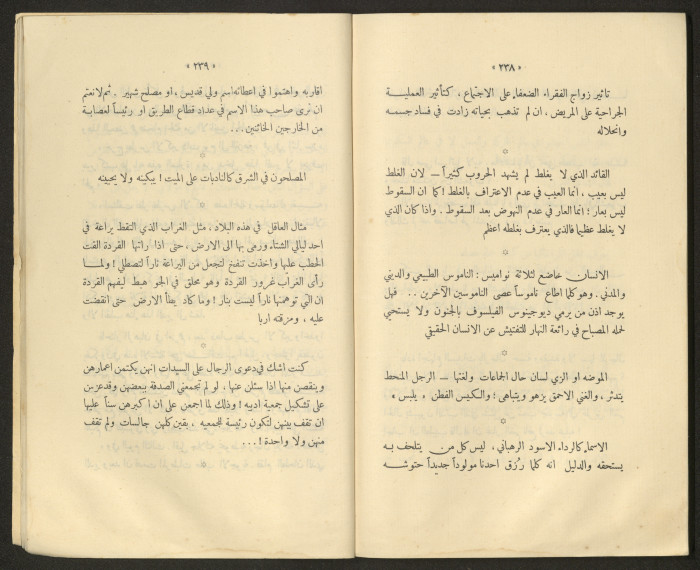 « ٢٣٨ »
تاثير زواج الفقراء الضعفاء على الاجتماع ، كتأثير العملية
الجراحية على المريض ، ان لم تذهب بحياته زادت في فساد جسمه
وانحلاله
القائد الذي لا يغلط لم يشهد الحروب كثيراً — لان الغلط
ليس بعيب ، انما العيب في عدم الاعتراف بالغلط ! كما ان السقوط
ليس بعار ؛ انما العار في عدم النهوض بعد السقوط . واذا كان الذي
لا يغلط عظيما فالذي يعترف بغلطه اعظم
الانسان خاضع لثلاثة نواميس : الناموس الطبيعي والديني
والمدني . وهو كلما اطاع ناموساً عصى الناموسين الآخرين . . فهل
يوجد اذن من يرمي ديوجينوس الفيلسوف بالجنون ولا يستحيي
لحمله المصباح في رائعة النهار للتفتيش عن الانسان الحقيقي
الموضه او الزي لسان حال الجماعات ولغتها — الرجل المنحط
يتدثر ، والغني الاحمق يزهو ويتباهى ! والكيس الفطن « يلبس »
الاسماء كالرداء الاسود الرهباني ، ليس كل من يلتحف به
يستحقه والدليل انه كلما رُزق احدنا مولوداً جديداً حتوشه
« ٢٣٩ »
اقاربه واهتموا في اعطائه اسم ولي قديس ، او مصلح شهير . ثم لا نعتم
ان نرى صاحب هذا الاسم في عداد قطاع الطريق او رئيساً لعصابة
من الخارجين الخائنين . . .
المصلحون في الشرق كالنادبات على الميت ! يبكينه ولا يحيينه
مثال العاقل في هذه البلاد ، مثل الغراب الذي التقط يراعة في
احد ليالي الشتاء ورمى بها الى الارض ، حتى اذا راتها القردة القت
الحطب عليها واخذت تنفخ لتجعل من اليراعة ناراً لتصطلي ! ولما
رأى الغراب غرور القردة وهو محلق في الجو هبط ليفهم القردة
ان التي توهمتها ناراً ليست بنار ! وما كاد يطأ الارض حتى انقضت
عليه ، ومزقته اربا
كنت اشك في دعوى الرجال على السيدات انهن يكتمن اعمارهن
وينقصن منها اذا سئلن عنها ، لو لم تجمعني الصدفة ببعضهن وقد عزمن
على تشكيل جمعية ادبيه ! وذلك لما اجمعن على ان اكبرهن سناً عليها
ان تقف بينهن لتكون رئيسة للجمعيه ، بقين كلهن جالسات ولم تقف
منهن ولا واحدة ! . . .